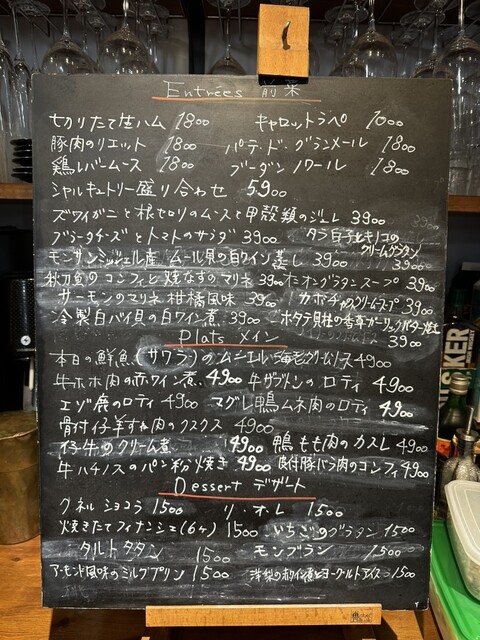 Entrées 前菜
切りたて生ハム 1800 キャロットラペ 1000
豚肉のリエット 1800 パテ・ド・グランメール 1800
鶏レバームース 1800 ブーダンノワール 1800
シャルキュトリー盛り合わせ 5900
ズワイガニと根セロリのムースと甲殻類のジュレ 3900
ブラータチーズとトマトのサラダ 3900 タラ白子とキノコのクリームグラタン 3900
モンサンミッシェル産 ムール貝の白ワイン蒸し 3900
秋刀魚のコンフィと焼なすのマリネ 3900 オニオングラタンスープ 3900
サーモンのマリネ 柑橘風味 3900 カボチャのクリームスープ 3900
冷製白バイ貝の白ワイン煮 3900 ホタテ貝柱の香草ガーリックバター焼き 3900
Plats メイン
本日の鮮魚(サワラ)のムニエル 海老クリームソース 4900
牛ホホ肉の赤ワイン煮 4900 牛ザブトンのロティ 4900
エゾ鹿のロティ 4900 マグレ鴨ムネ肉のロティ 4900
骨付仔羊すね肉のクスクス 4900
仔牛のクリーム煮 4900 鴨もも肉のカスレ 4900
牛ハチノスのパン粉焼き 4900 皮付豚バラ肉のコンフィ 4900
Dessert デザート
クネルショコラ 1500 リ・オ・レ 1500
焼きたてフィナンシェ(6ヶ) 1500 いちごのグラタン 1500
タルトタタン 1500 モンブラン 1500
アーモンド風味のミルクプリン 1500 洋梨の赤ワイン煮とヨーグルトアイス 1500